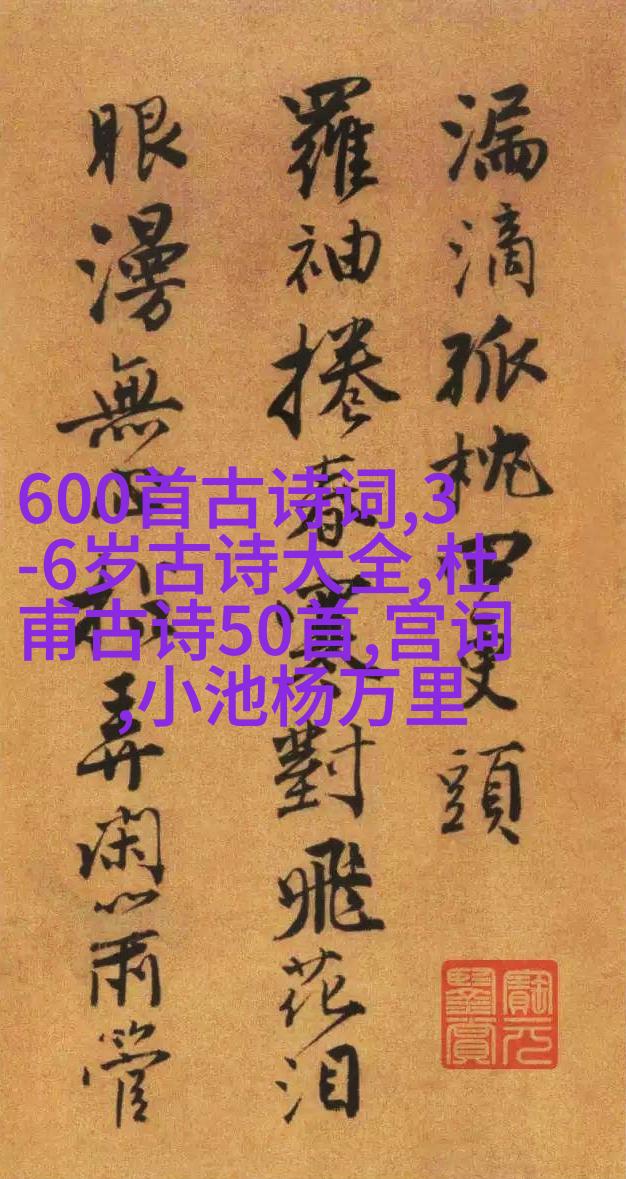 漏滴孤枕四更頭
羅袖捲春寒對飛花泪
眼漫無弄閑心雨管
600首古诗词,3
-6岁古诗大全,杜
甫古诗50首,宫词
,小池杨万里